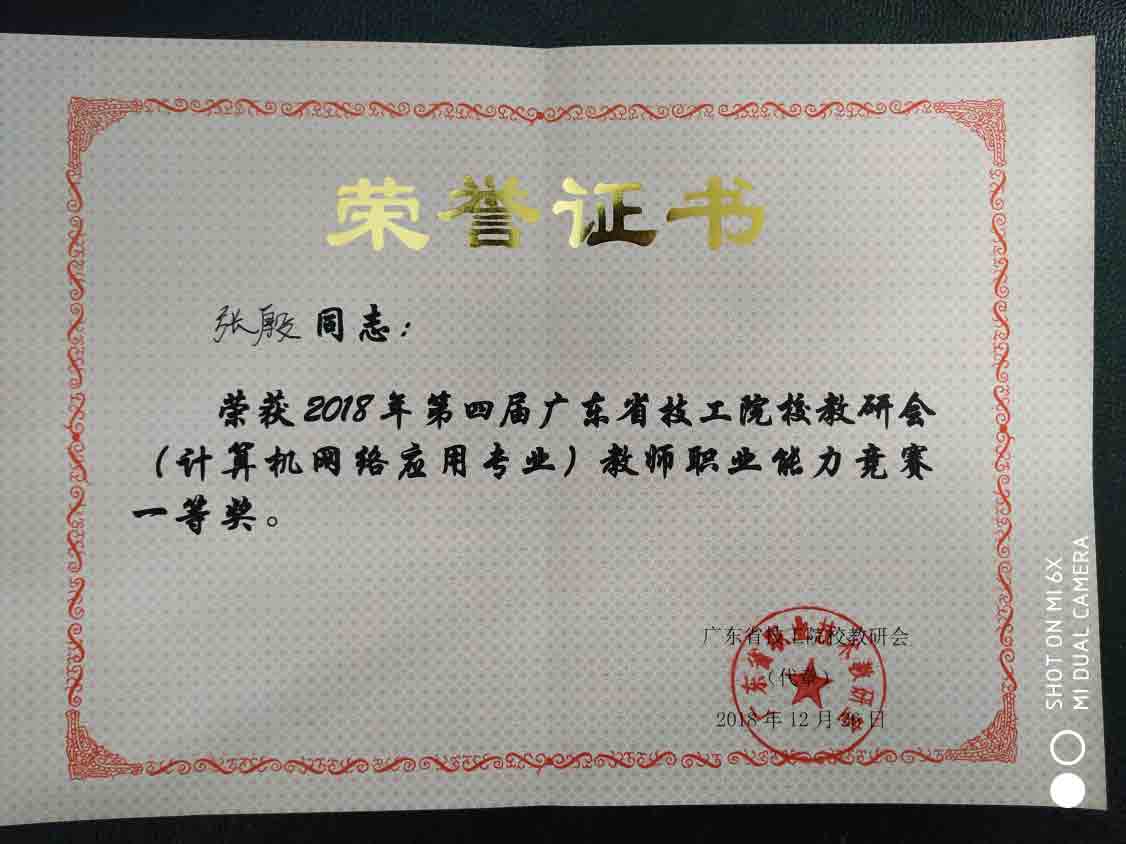 荣誉证书
张殷同志：
荣获2018年第四届广东省技工院校教研会
（计算机网络应用专业）教师职业能力竞赛
一等奖。
广东省技工院校教研会
（代章）
2018年12月26日
广东省职业技术教研会
SHOT ON MI 6X
MI DUAL CAMERA